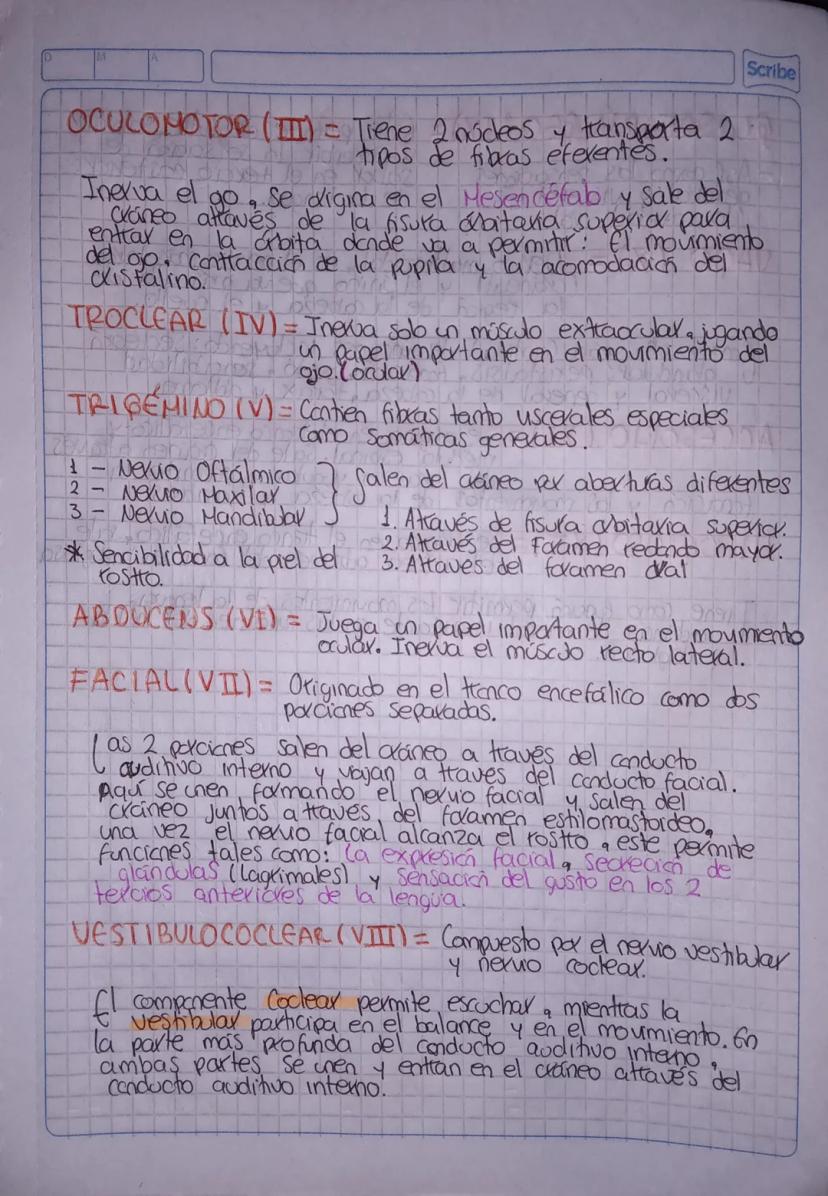 D M A
Scribe
OCULOMOTOR (III) = Tiene 2 núcleos y transporta 2
tipos de fibras eferentes.
Inerva el ojo, se origina en el Mesencéfalo y sale del
cráneo através de la fisura orbitaria superior para
entrar en la órbita donde va a permitir: El movimiento
del ojo, contracción de la pupila y la acomodación del
cristalino.
TROCLEAR (IV) = Inerva solo un músculo extraocular, jugando
un papel importante en el movimiento del
ojo. (ocular)
TRIGÉMINO (V) = Contien fibras tanto viscerales especiales
como somáticas generales.
1 - Nervio Oftálmico
2 - Nervio Maxilar
3 - Nervio Mandibular
Salen del cráneo por aberturas diferentes
1. Através de fisura orbitaria superior.
2. Através del Foramen redondo mayor.
3. Através del foramen oval
* Sencibilidad a la piel del
rostro.
ABDUCENS (VI) = Juega un papel importante en el movimiento
ocular. Inerva el músculo recto lateral.
FACIAL (VII) = Originado en el tronco encefálico como dos
porciones separadas.
Las 2 porciones salen del cráneo a través del conducto
auditivo interno y viajan a traves del conducto facial.
Aquí se unen, formando el nervio facial y salen del
cráneo juntos a través del foramen estilomastoideo,
una vez el nervio facial alcanza el rostro, este permite
funciones tales como: la expresión facial, secreción de
glándulas (lagrimales) y sensación del gusto en los 2
tercios anteriores de la lengua.
VESTIBULOCOCLEAR (VIII) = Compuesto por el nervio vestibular
y nervio coclear.
El componente Coclear permite escuchar, mientras la
vestibular participa en el balance y en el movimiento. En
la parte más profunda del conducto auditivo interno,
ambas partes se unen y entran en el cráneo através del
conducto auditivo interno.